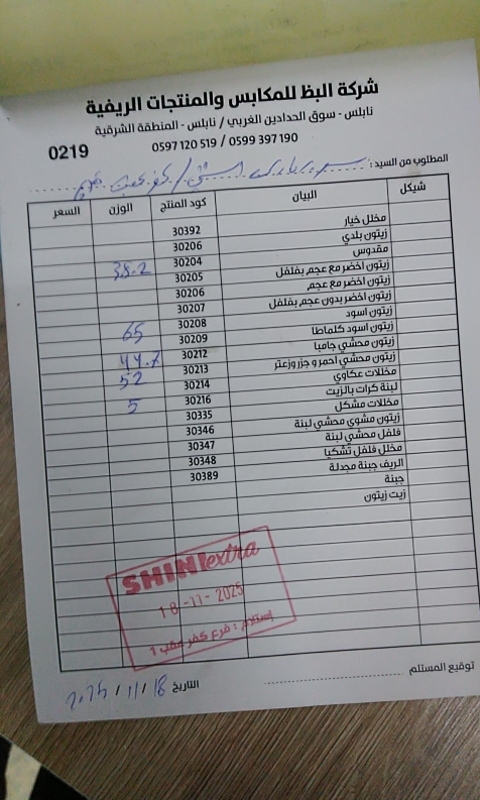 شركة البظ للمكابس والمنتجات الريفية
نابلس - سوق الحدادين الغربي / نابلس - المنطقة الشرقية
0599 397 190 / 0597 120 519
0219
المطلوب من السيد :
شيكل البيان كود المنتج الوزن السعر
مخلل خيار 30392
زيتون بلدي 30206
مقدوس 30204
زيتون اخضر مع عجم بفلفل 30205 38.2
زيتون اخضر مع عجم 30206
زيتون اخضر بدون عجم بفلفل 30207
زيتون اسود 30208
زيتون اسود كلماطا 30209 65
زيتون محشي جامبا 30212
زيتون محشي احمر و جزر وزعتر 30213
مخللات عكاوي 30214 52
لبنة كرات بالزيت 30216
مخللات مشكل 30335 5
زيتون مشوي محشي لبنة 30346
فلفل محشي لبنة 30347
مخلل فلفل تشكيا 30348
الريف جبنة مجدلة 30389
جبنة
زيت زيتون
SHINI extra
18-11-2025
إستلام : فرع كفر عقب 1
توقيع المستلم
التاريخ 18 / 11 / 2025